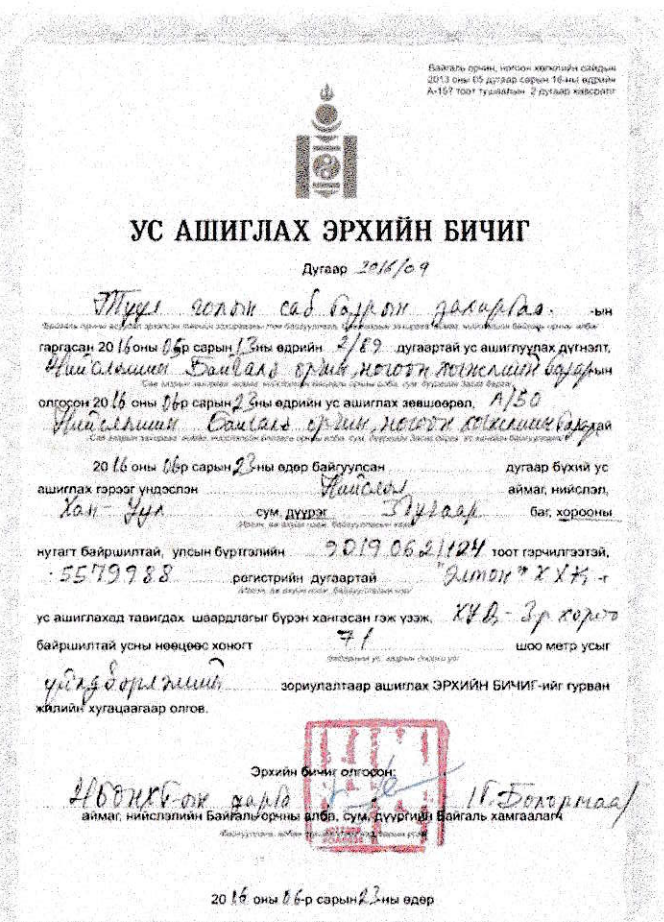 Байгаль орчин, ногоон хөгжлийн сайдын
2013 оны 05 дугаар сарын 16-ны өдрийн
А-157 тоот тушаалын 2 дугаар хавсралт
УС АШИГЛАХ ЭРХИЙН БИЧИГ
Дугаар 2016/09
Туул голын сав газрын захиргаа. -ын
гаргасан 2016 оны 06р сарын 13ны өдрийн 2/89 дугаартай ус ашиглуулах дүгнэлт,
Нийслэлийн Байгаль орчин, ногоон хөгжлийн газарын
олгосон 2016 оны 06р сарын 23ны өдрийн ус ашиглах зөвшөөрөл, А/50
Нийслэлийн Байгаль орчин, ногоон хөгжлийн газартай
2016 оны 06р сарын 23ны өдөр байгуулсан дугаар бүхий ус
ашиглах гэрээг үндэслэн Нийслэл аймаг, нийслэл,
Хан-Уул сум, дүүрэг 3 дугаар баг, хорооны
нутагт байршилтай, улсын бүртгэлийн 9019062124 тоот гэрчилгээтэй,
5579988 регистрийн дугаартай "Элтон" ХХК -г
ус ашиглахад тавигдах шаардлагыг бүрэн хангасан гэж үзэж, ХУД-3р хороо
байршилтай усны нөөцөөс хоногт 71 шоо метр усыг
үйлдвэрлэлийн зориулалтаар ашиглах ЭРХИЙН БИЧИГ-ийг гурван
жилийн хугацаагаар олгов.
Эрхийн бичиг олгосон:
НБОНХГ-ын дарга /П.Болормаа/
аймаг, нийслэлийн Байгаль орчны алба, сум, дүүргийн Байгаль хамгаалагч
2016 оны 06-р сарын 23-ны өдөр